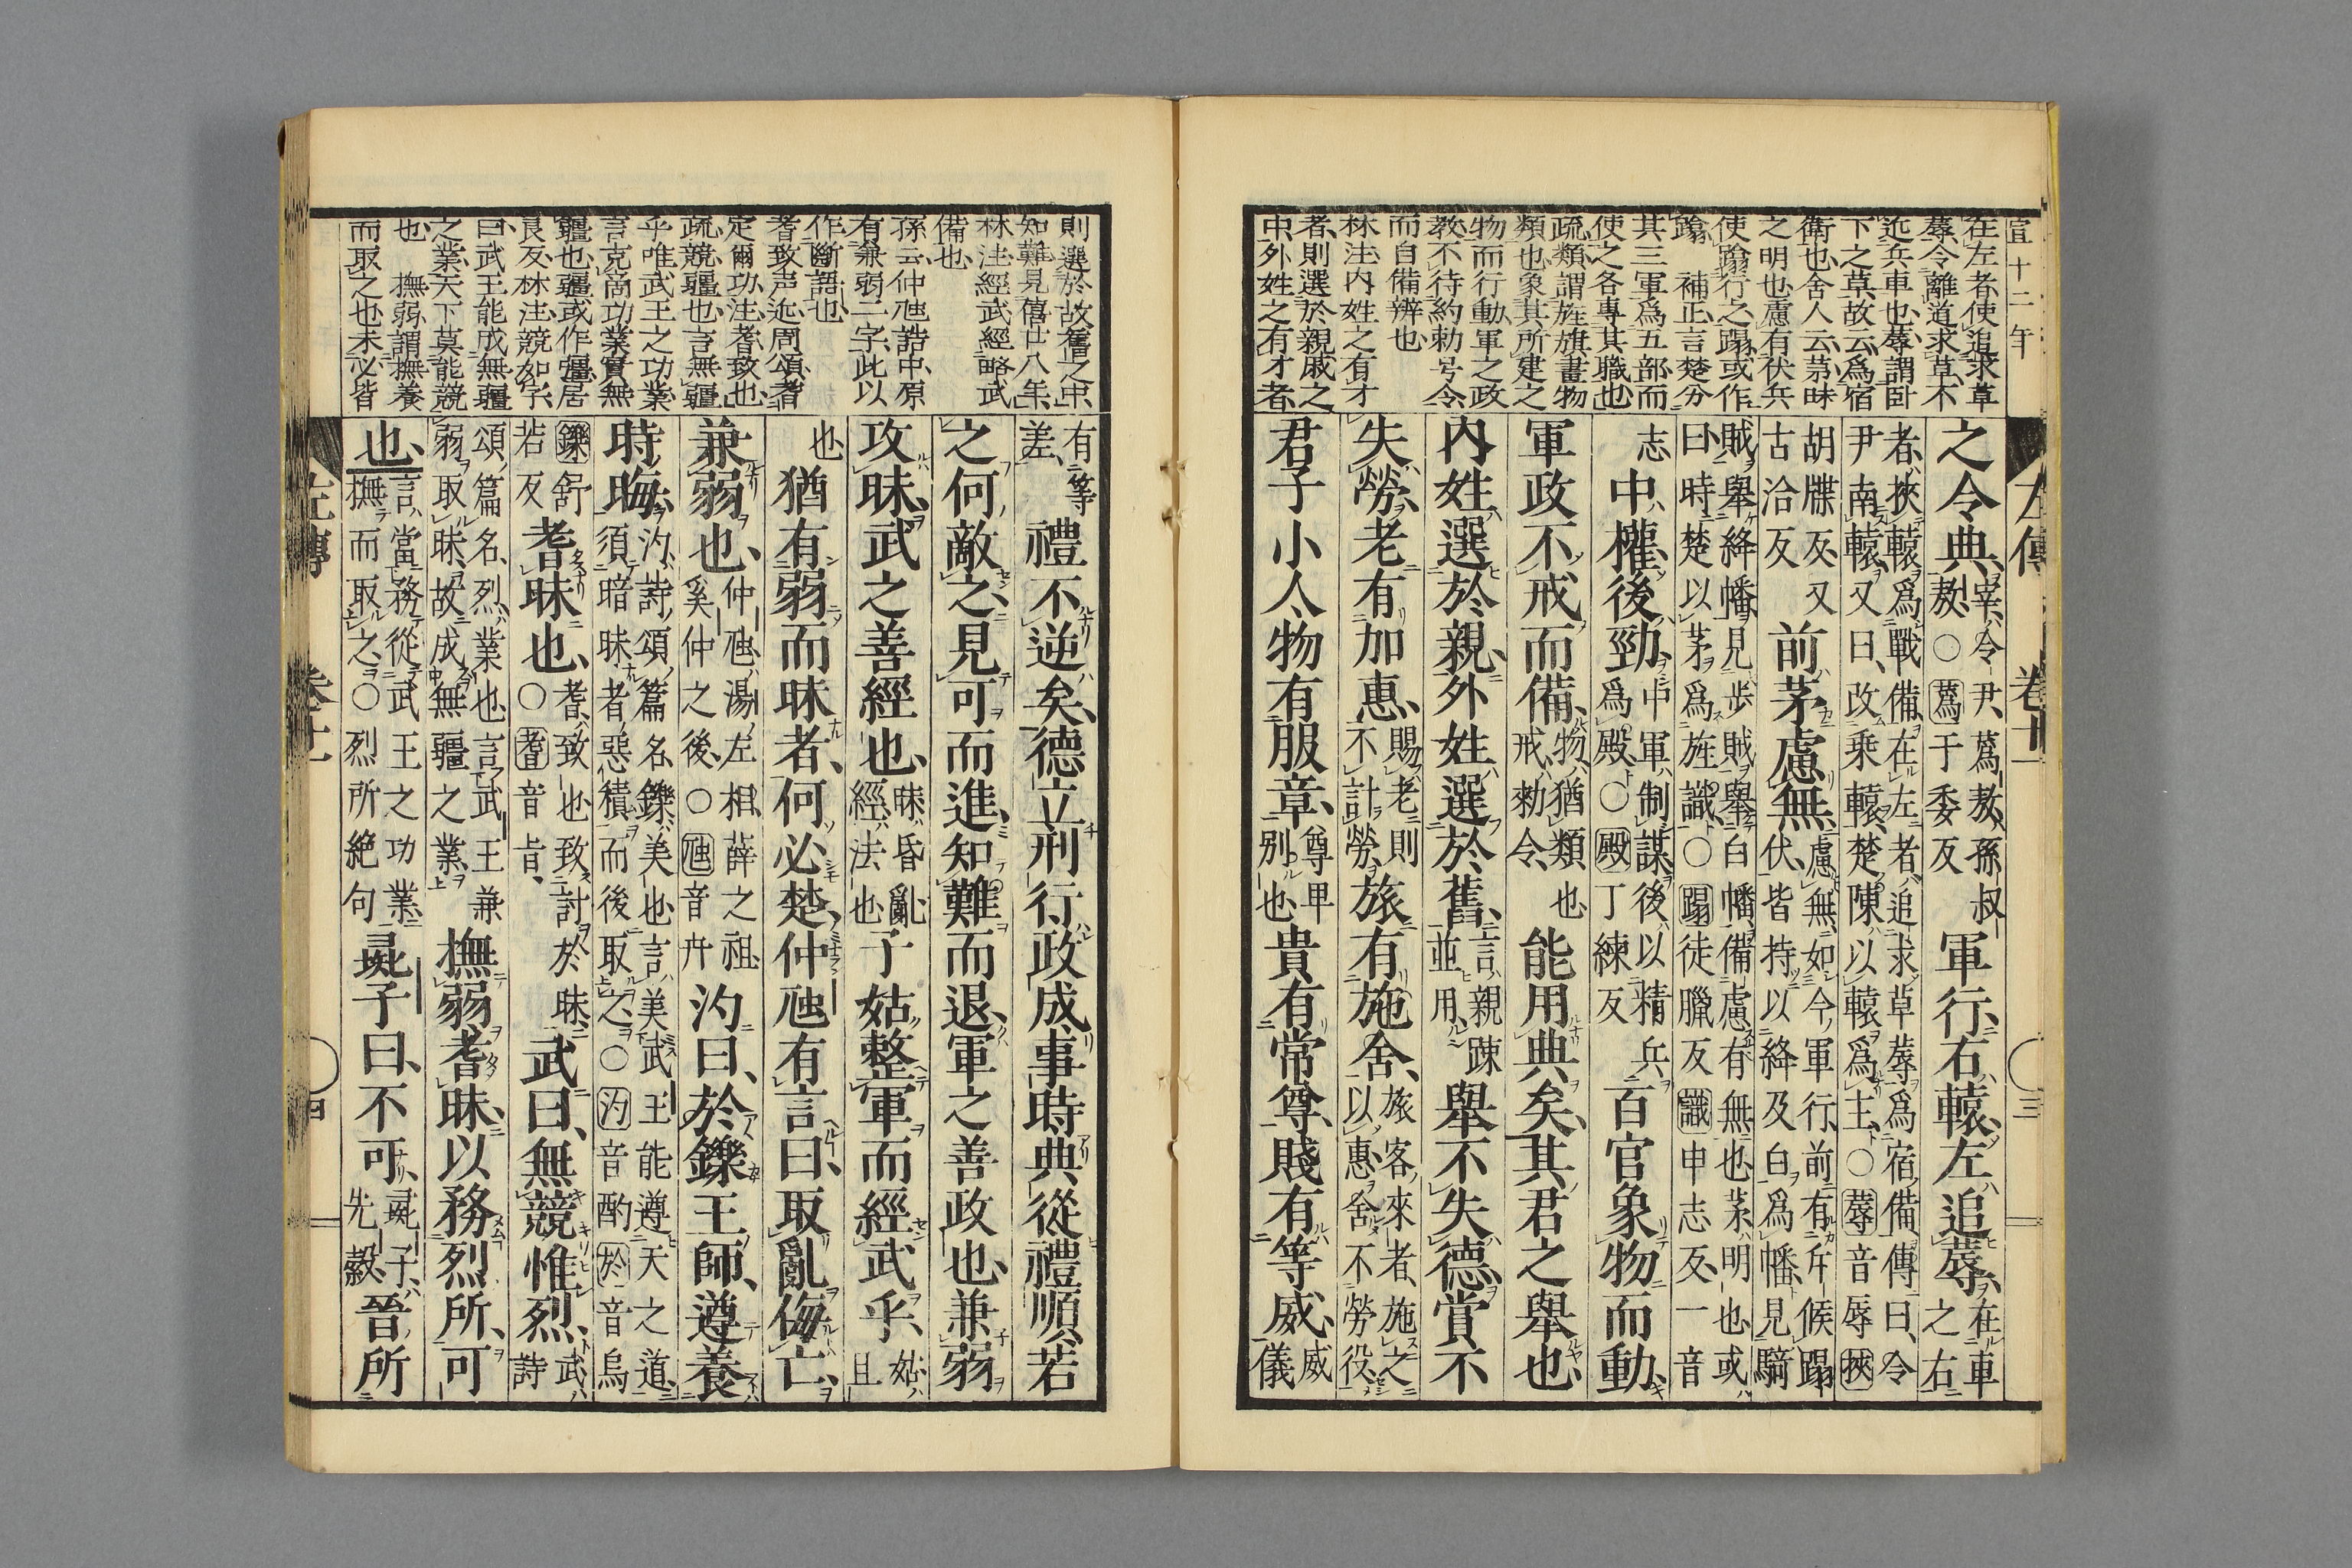 宣十二年
左傳 卷十一 三
在左者使追求草
蓐令離道求草不
近兵車也蓐謂臥
下之草故云爲宿
衛也舍人云茅昧
之明也慮有伏兵
使蹹行之蹋或作
蹹 補正言楚分
其三軍爲五部而
使之各專其職也
疏類謂旌旗畫物
類也象其所建之
物而行動軍之政
教不待約勅号令
而自備辨也
林注内姓之有才
者則選於親戚之
中外姓之有才者
之令典宰令尹蒍敖孫叔敖○蒍于委反軍行右轅左追蓐在車之右
者挾轅爲戰備在左者追求草蓐爲宿備傳曰令
尹南轅又曰改乘轅楚陳以轅爲主○蓐音辱挾
胡牒反又古洽反前茅慮無慮無如今軍行前有斥候蹋伏皆持以絳及白爲幡見騎
賊舉絳幡見步賊舉白幡備慮有無也茅明也或
曰時楚以茅爲旌識○蹋徒臘反識申志反一音
志中權後勁中軍制謀後以精兵爲殿○殿丁練反百官象物而動
軍政不戒而備物猶類也戒勅令能用典矣其君之舉也
内姓選於親外姓選於舊言親踈並用舉不失德賞不
失勞老有加惠賜老則不計勞旅有施舍旅客來者施之以惠舍不勞役
君子小人物有服章尊卑別也貴有常尊賤有等威威儀
則選於故舊之中
知難見僖廿八年
林注經武經略武
備也
孫云仲虺誥中原
有兼弱二字此以
作斷語也
耆致声近周頌耆
定爾功注耆致也
疏競疆也言無疆
乎唯武王之功業
言克商功業實無
疆也疆或作彊居
良反林注競如字
曰武王能成無疆
之業天下莫能競
也 撫弱謂撫養
而取之也未必皆
有等差禮不逆矣德立刑行政成事時典從禮順若
之何敵之見可而進知難而退軍之善政也兼弱
攻昧武之善經也昧昏亂經法也子姑整軍而經武乎姑且
也猶有弱而昧者何必楚仲虺有言曰取亂侮亡
兼弱也仲虺湯左相薛之祖奚仲之後○虺音卉汋曰於鑠王師遵養
時晦汋詩頌篇名鑠美也言美武王能遵天之道須暗昧者惡積而後取之○汋音酌於音烏
鑠舒若反耆昧也耆致也致討於昧○耆音旨武曰無競惟烈武詩
頌篇名烈業也言武王兼弱取昧故成無疆之業撫弱耆昧以務烈所可
也言當務從武王之功業撫而取之○烈所絶句彘子曰不可彘子先縠晉所
左傳 卷十一 四